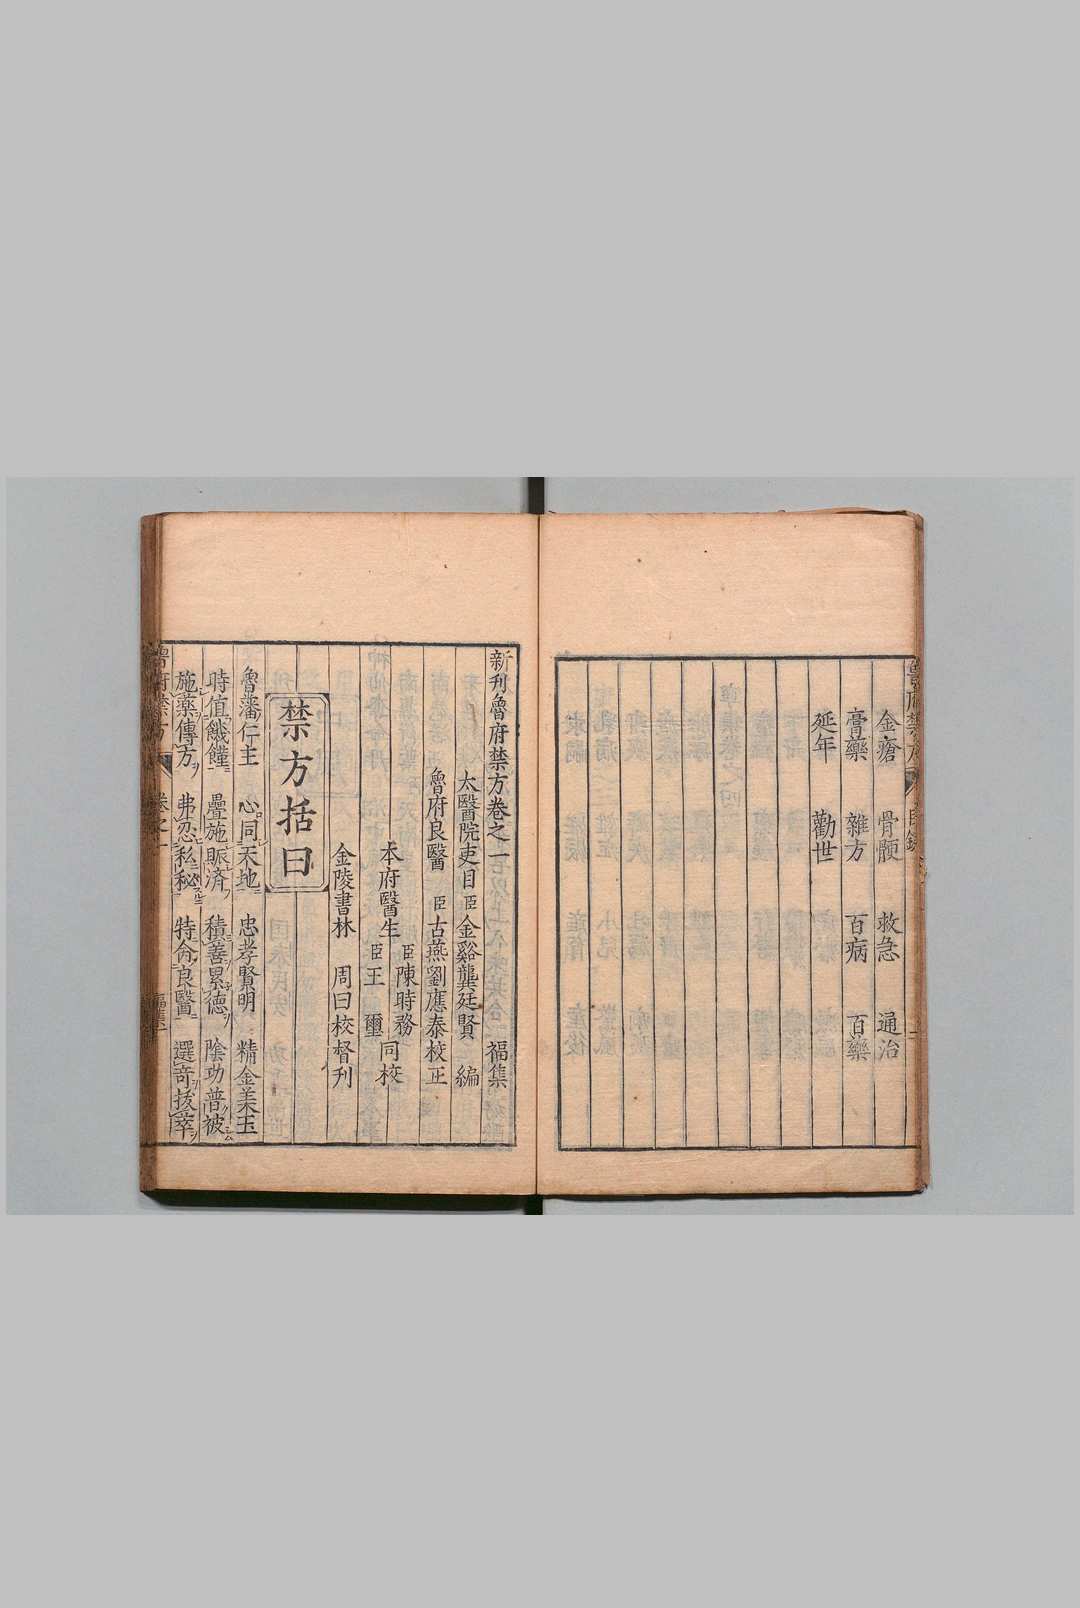 金瘡 骨骾 救急 通治
膏藥 雜方 百病 百藥
延年 勸世
新刊魯府禁方卷之一 福集
太醫院吏目臣金谿龔廷賢 編
魯府良醫 臣古燕劉應泰校正
本府醫生 臣陳時務 臣王 璽 同校
金陵書林 周曰校督刊
禁方括曰
魯藩仁主 心同天地 忠孝賢明 精金美玉
時值饑饉 疊施賑済 積善累德 陰功普被
施藥傳方 弗忍私秘 特命良醫 選奇拔萃
魯府禁方 卷之一 福集